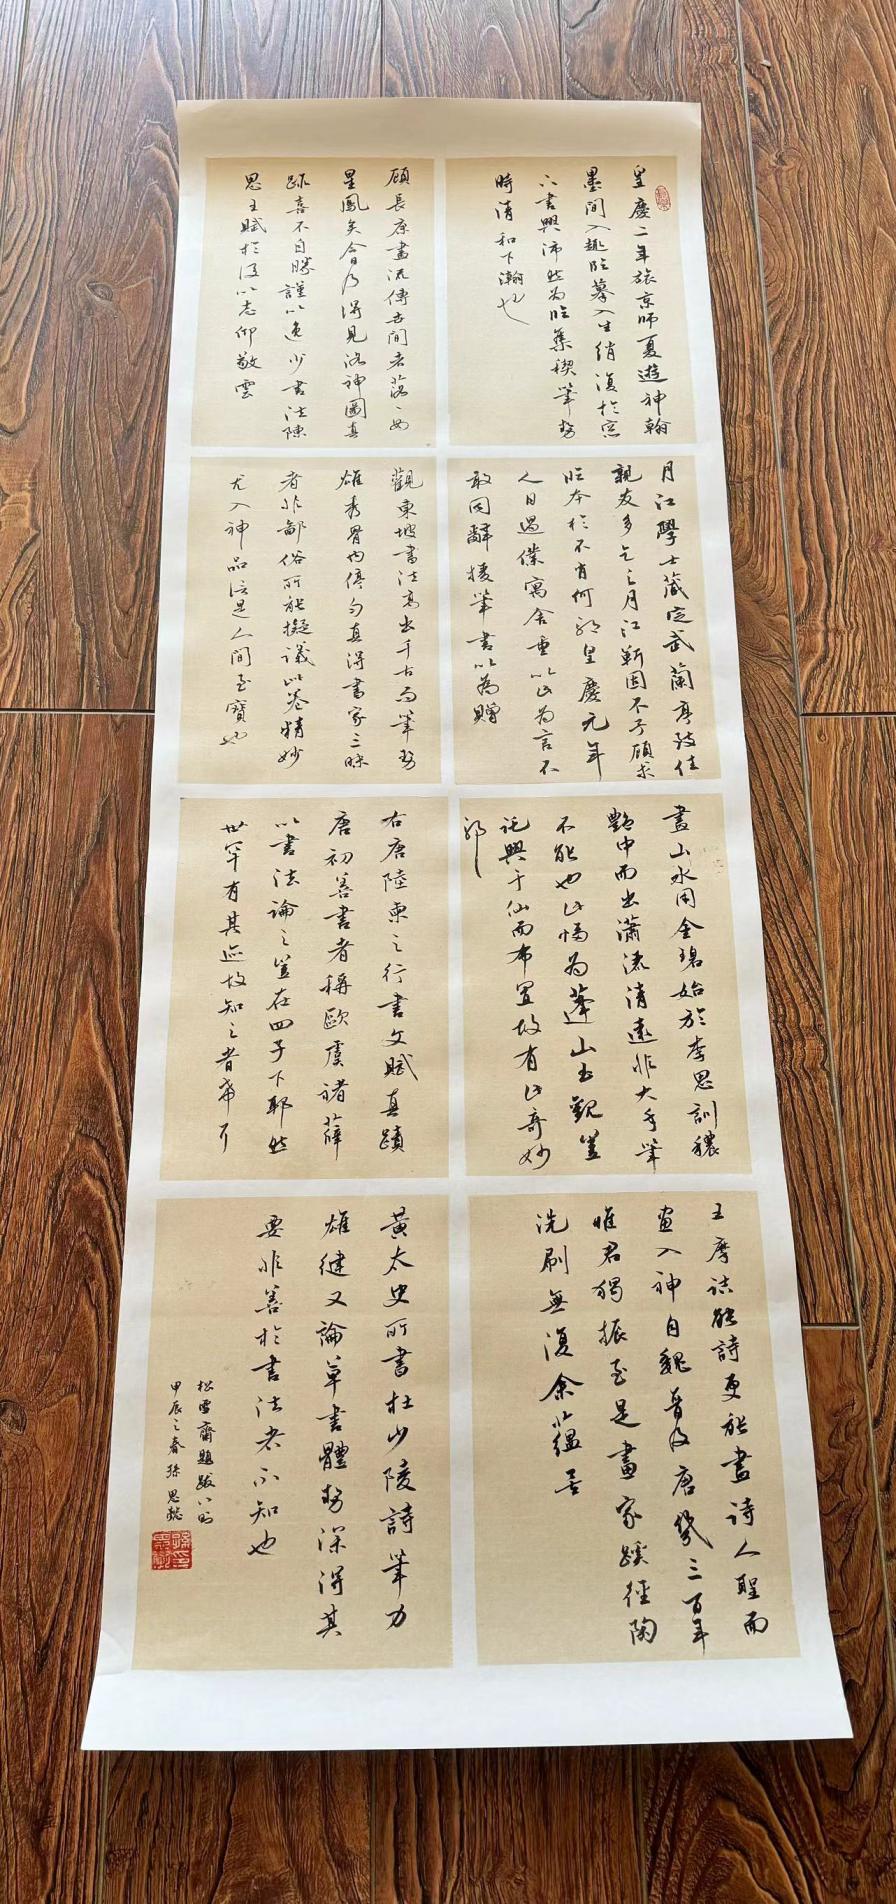 皇慶二年旅京師夏遊神翰
墨間入趣臨摹入生綃復於窓
下書興沛然為臨集稧筆勢
時清和下瀚也
顧長康畫流傳世間者落落如
星鳳矣今日乃得見洛神圖真
跡喜不自勝謹以逸少書法陳
思王賦於後以志仰敬云
月江學士藏定武蘭亭致佳
親友多乞之月江靳固不予顧求
臨本於不肖何耶皇慶元年
人日過僕寓舍重以此為言不
敢固辭援筆書以為贈
觀東坡書法高出千古而筆勢
雄秀骨肉停勻真得書家三昧
者非鄙俗所能擬議此卷精妙
尤入神品信是人間至寶也
畫山水用金碧始於李思訓穠
艷中而出瀟洒清遠非大手筆
不能也此幅為蓬山玉觀豈
託興于仙而布置故有此奇妙
耶
右唐陸柬之行書文賦真蹟
唐初善書者稱歐虞禇薛
以書法論之豈在四子下耶然
世罕有其迹故知之者希耳
王摩詰能詩更能畫詩人聖而
畫入神自魏晉及唐幾三百年
惟君獨振至是畫家蹊徑陶
洗刷無復余蘊矣
黃太史所書杜少陵詩筆力
雄健又論草書體勢深得其
要非善於書法者不知也
松雪齋題跋八則
甲辰之春孫思懿